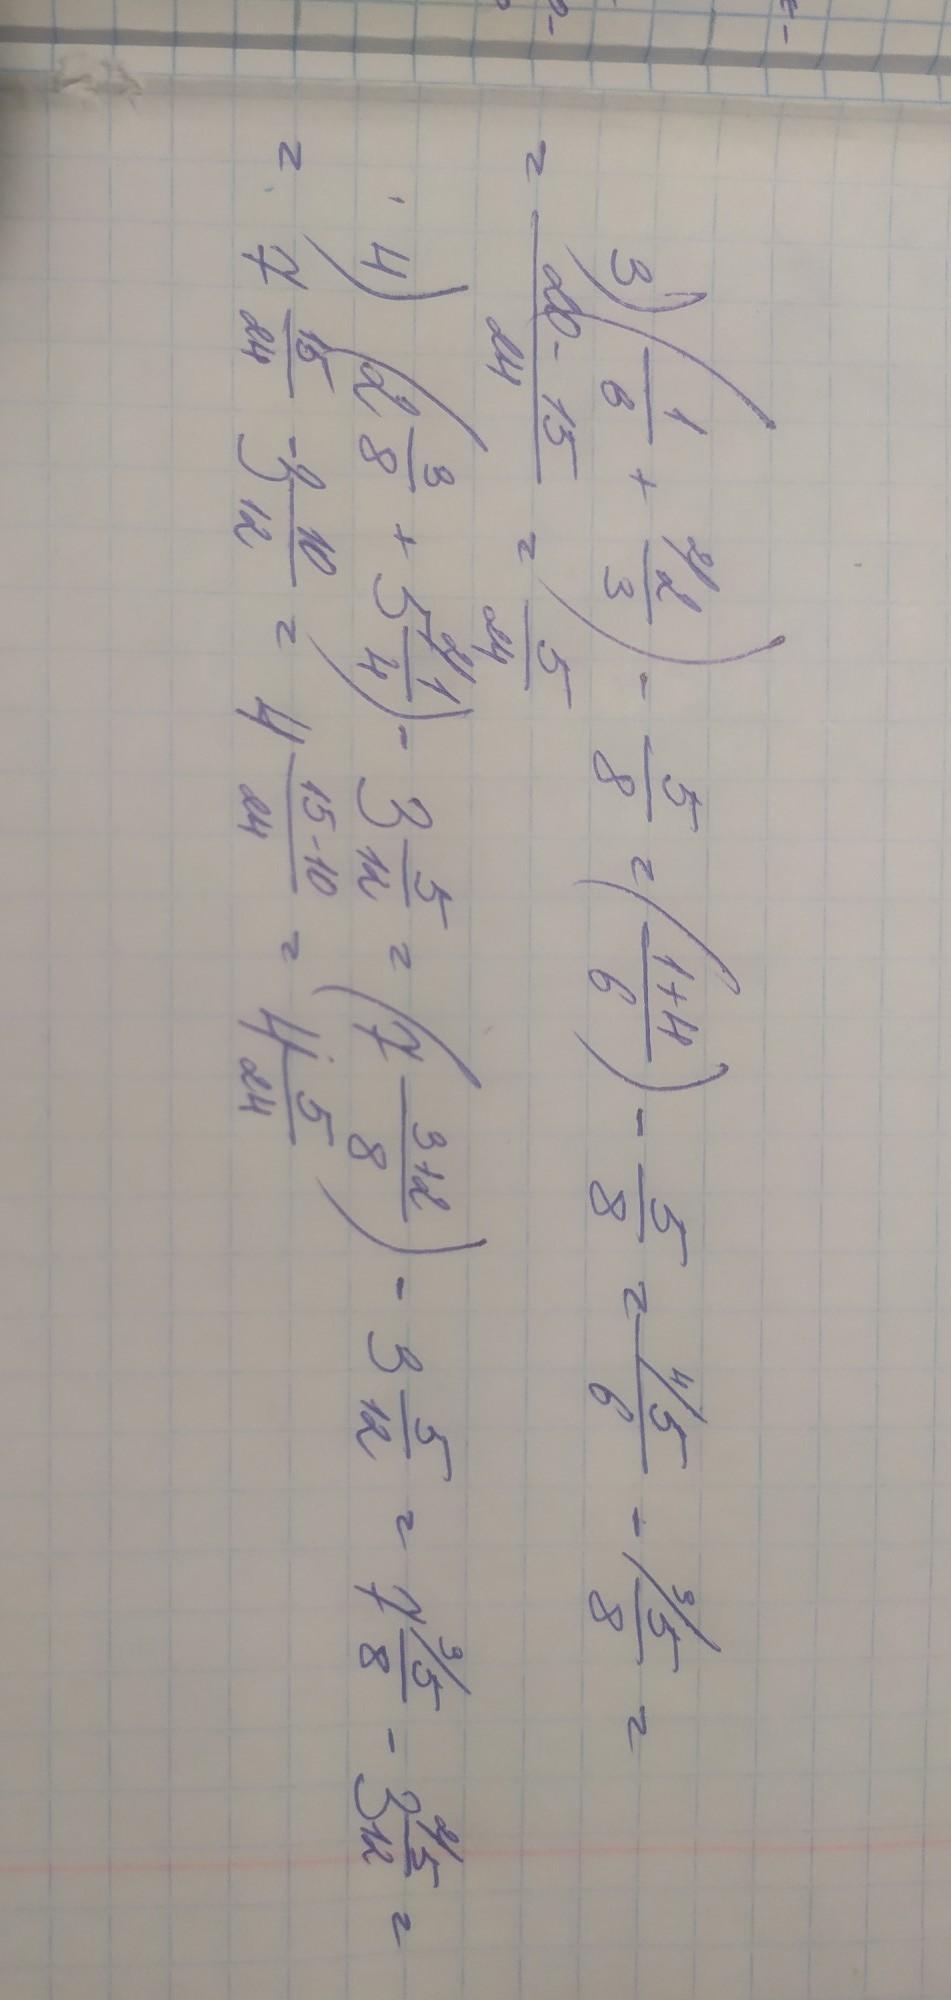 3) (1/6 + ²⁄2/3) - 5/8 = (1+4/6) - 5/8 = ⁴⁄5/6 - ³⁄5/8 =
= 20-15/24 = 5/24
4) (2 3/8 + 5 ²⁄1/4) - 3 5/12 = (7 3+2/8) - 3 5/12 = 7 ³⁄5/8 - 3 ²⁄5/12 =
= 7 15/24 - 3 10/12 = 4 15-10/24 = 4 5/24